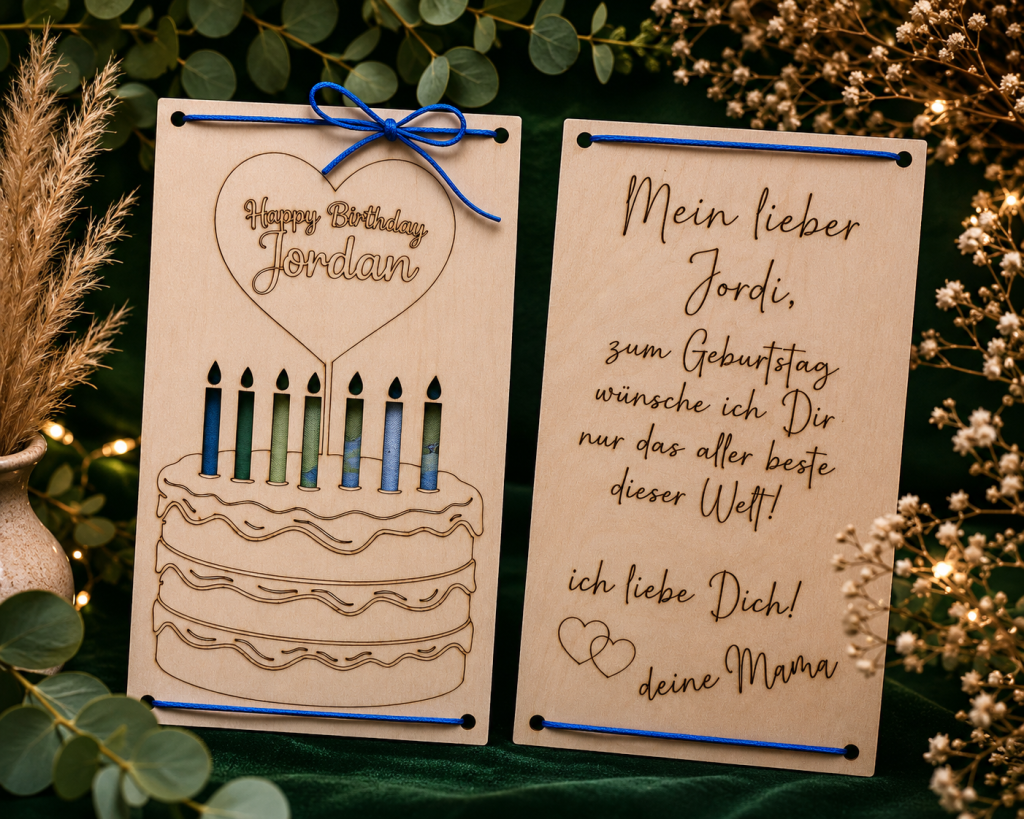 Happy Birthday
Jordan
Mein lieber
Jordi,
zum Geburtstag
wünsche ich Dir
nur das aller beste
dieser Welt!
ich liebe Dich!
deine Mama